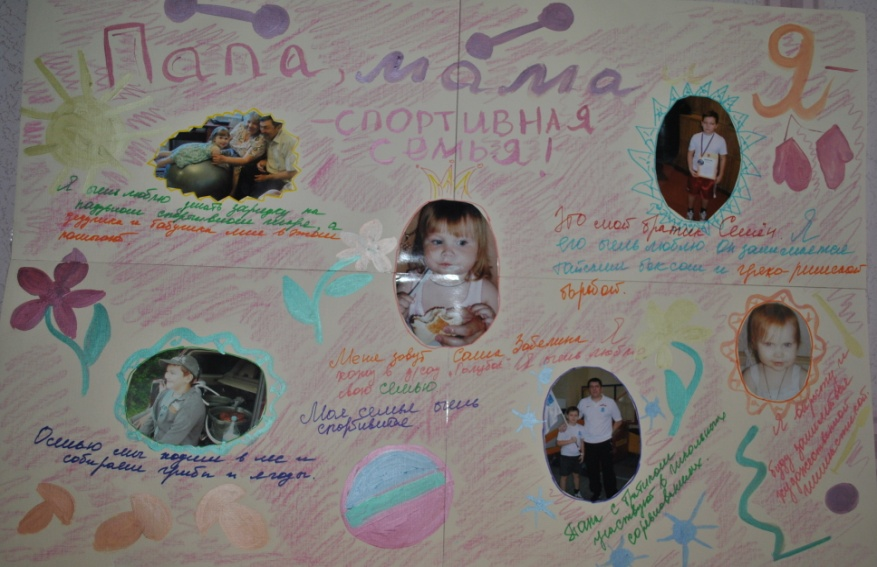 Папа, мама Я-
-спортивная
семья!
Я очень люблю делать зарядку на
надувном спортивном шаре, а
дедушка и бабушка мне в этом
помогают
Это мой братик Семён. Я
его очень люблю. Он занимается
тайским боксом и греко-римской
борьбой.
Меня зовут Саша Забелина. Я
хожу в д/сад "Голубок". Я очень люблю
свою семью.
Моя семья очень
спортивная
Осенью мы ходим в лес и
собираем грибы и ягоды.
Папа с братиком
участвуют в школьных
соревнованиях
Я вырасту и
буду заниматься
художественной
гимнастикой